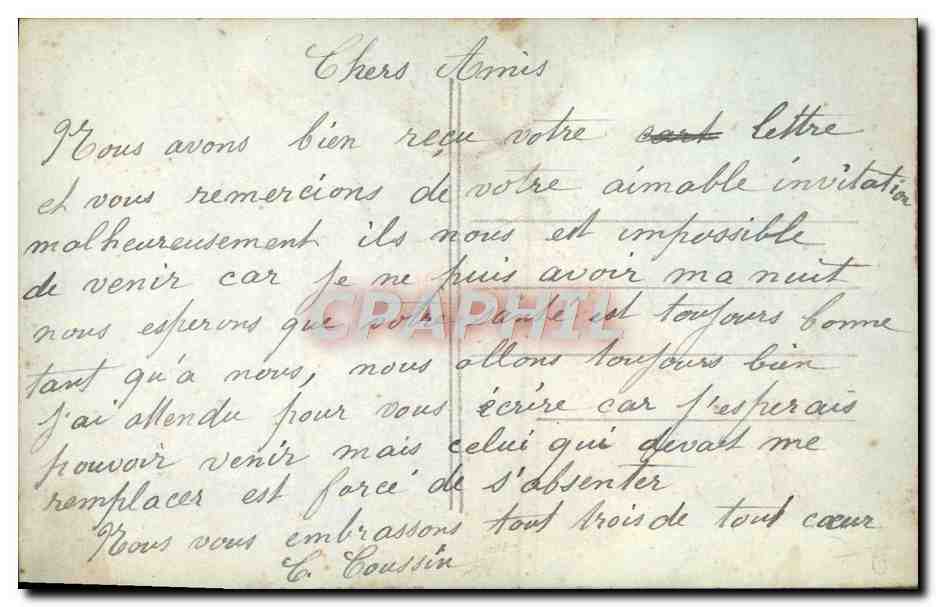 Chers Amis
Nous avons bien reçu votre cart lettre
et vous remercions de votre aimable invitation
malheureusement ils nous est impossible
de venir car je ne puis avoir ma nuit
nous esperons que votre santé est toujours bonne
tant qu'à nous, nous allons toujours bien
j'ai attendu pour vous écrire car j'esperais
pouvoir venir mais celui qui devait me
remplacer est forcé de s'absenter
Nous vous embrassons tout trois de tout cœur
C. Coussin
CPAPHIL